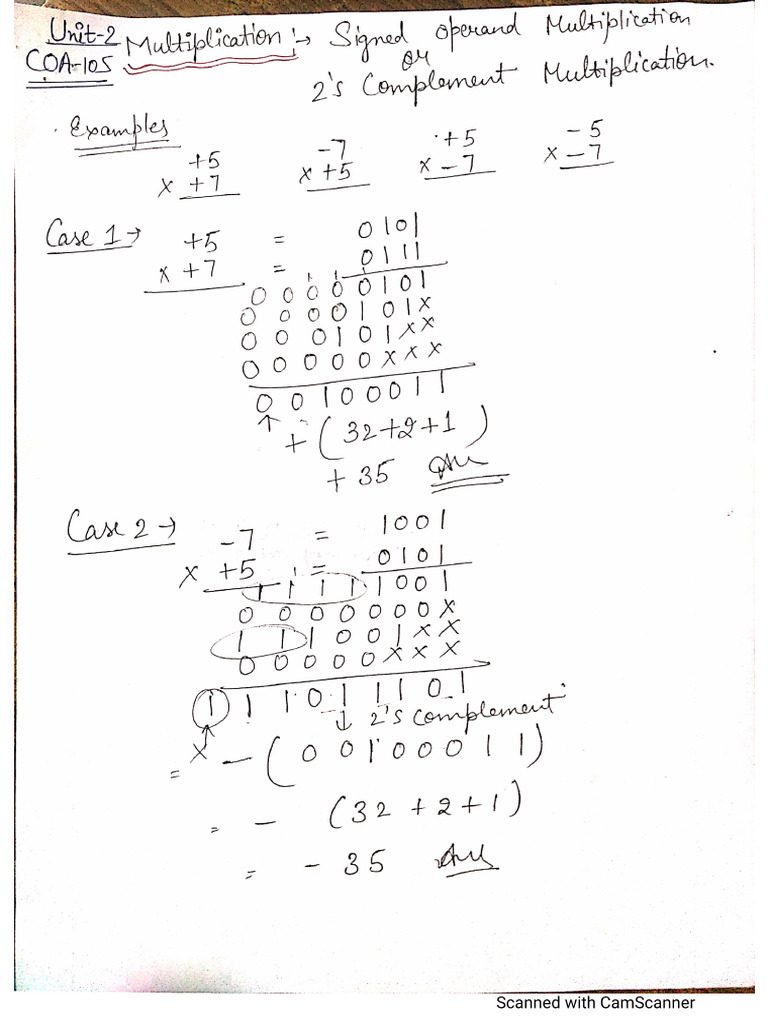 Unit-2 Multiplication :→ Signed operand Multiplication
COA-105 or
2's Complement Multiplication.
Examples
+5 -7 +5 -5
x +7 x +5 x -7 x -7
Case 1→ +5 = 0101
x +7 = 0111
1 1 1
0 0 0 0 0 1 0 1
0 0 0 0 1 0 1 x
0 0 0 1 0 1 x x
0 0 0 0 0 x x x
0 0 1 0 0 0 1 1
↑ + (32+2+1)
+ 35 Ans
Case 2→ -7 = 1001
x +5 = 0101
1 1 1 1 1 0 0 1
0 0 0 0 0 0 0 x
1 1 1 0 0 1 x x
0 0 0 0 0 x x x
1 1 1 0 1 1 1 0 1
↓ 2's complement
x
= - (0 0 1 0 0 0 1 1)
= - (32 + 2 + 1)
= - 35 Ans
Scanned with CamScanner